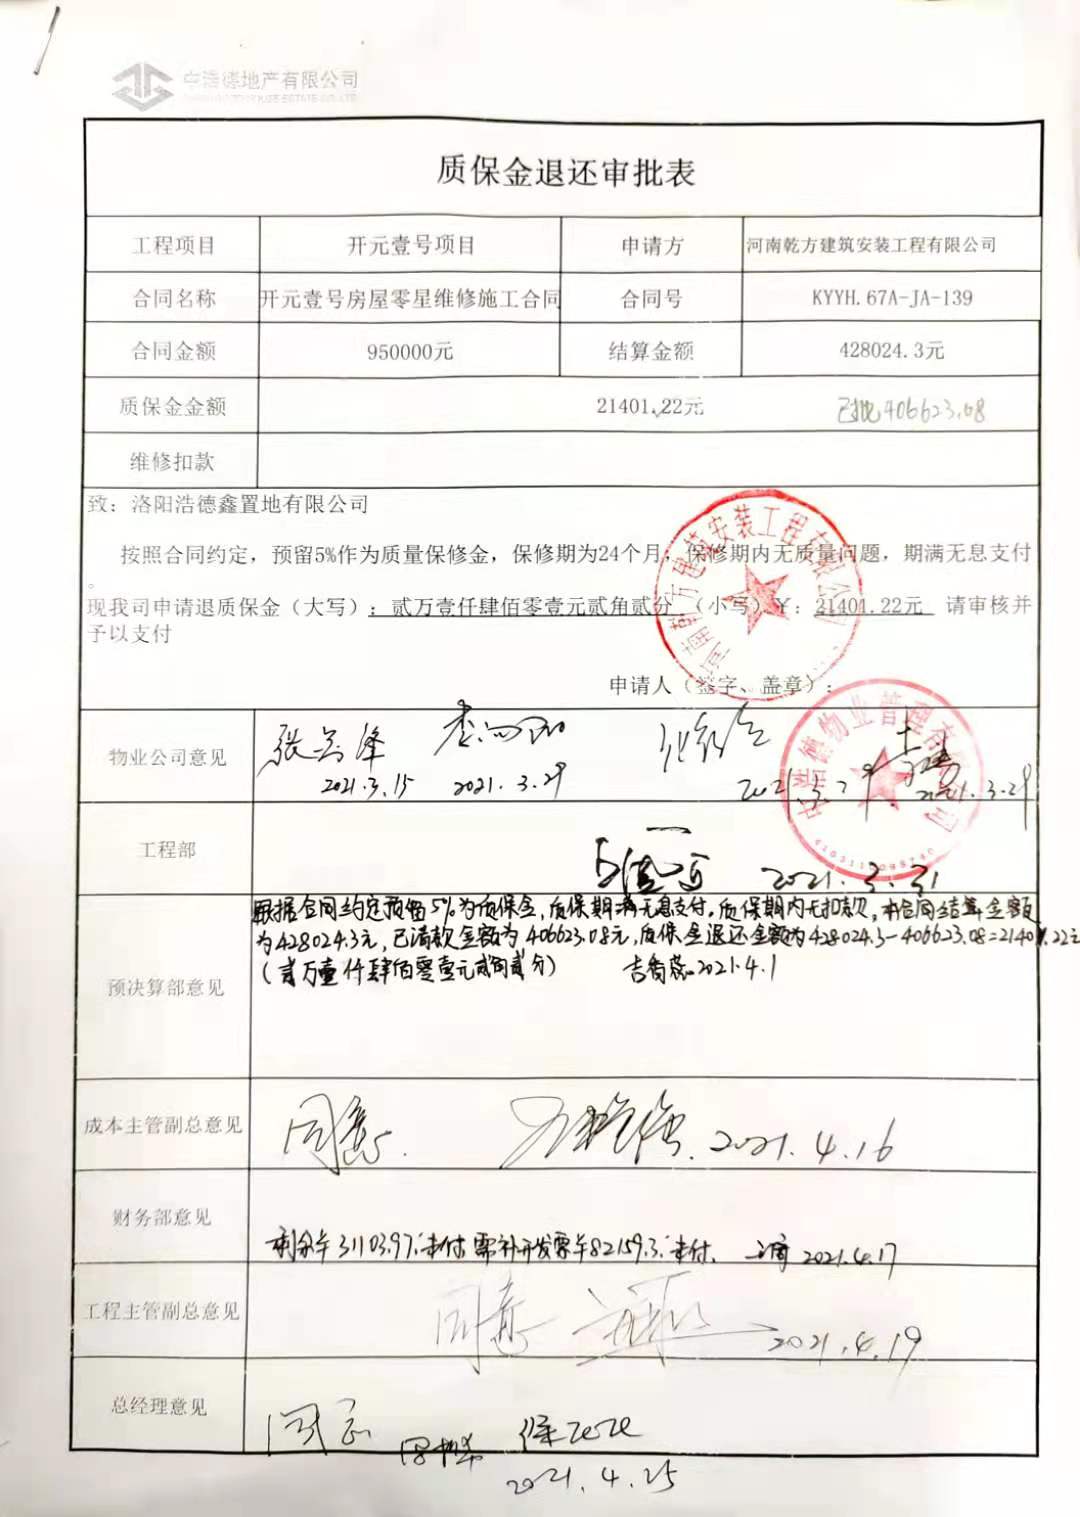 地产有限公司
质保金退还审批表
工程项目 开元壹号项目 申请方 河南乾方建筑安装工程有限公司
合同名称 开元壹号房屋零星维修施工合同 合同号 KYYH.67A-JA-139
合同金额 950000元 结算金额 428024.3元
质保金金额 21401.22元 已批406623.08
维修扣款
致：洛阳浩德鑫置地有限公司
按照合同约定，预留5%作为质量保修金，保修期为24个月，保修期内无质量问题，期满无息支付
。
现我司申请退质保金（大写）：贰万壹仟肆佰零壹元贰角贰分 （小写）￥：21401.22元 请审核并
予以支付
申请人（签字、盖章）：
物业公司意见
2021.3.15 2021.3.29 2021.3.29 2021.3.29
工程部 2021.3.31
根据合同约定预留5%为质保金，质保期满无息支付。质保期内无扣款，本合同结算金额
为428024.3元，已请款金额为406623.08元，质保金退还金额为428024.3-406623.08=21401.22元
（贰万壹仟肆佰零壹元贰角贰分） 2021.4.1
预决算部意见
成本主管副总意见 同意 2021.4.16
财务部意见
剩余 31103.97 未付 需补开发票 82159.3 未付 2021.4.17
工程主管副总意见 同意 2021.4.19
总经理意见 同意
2021.4.25